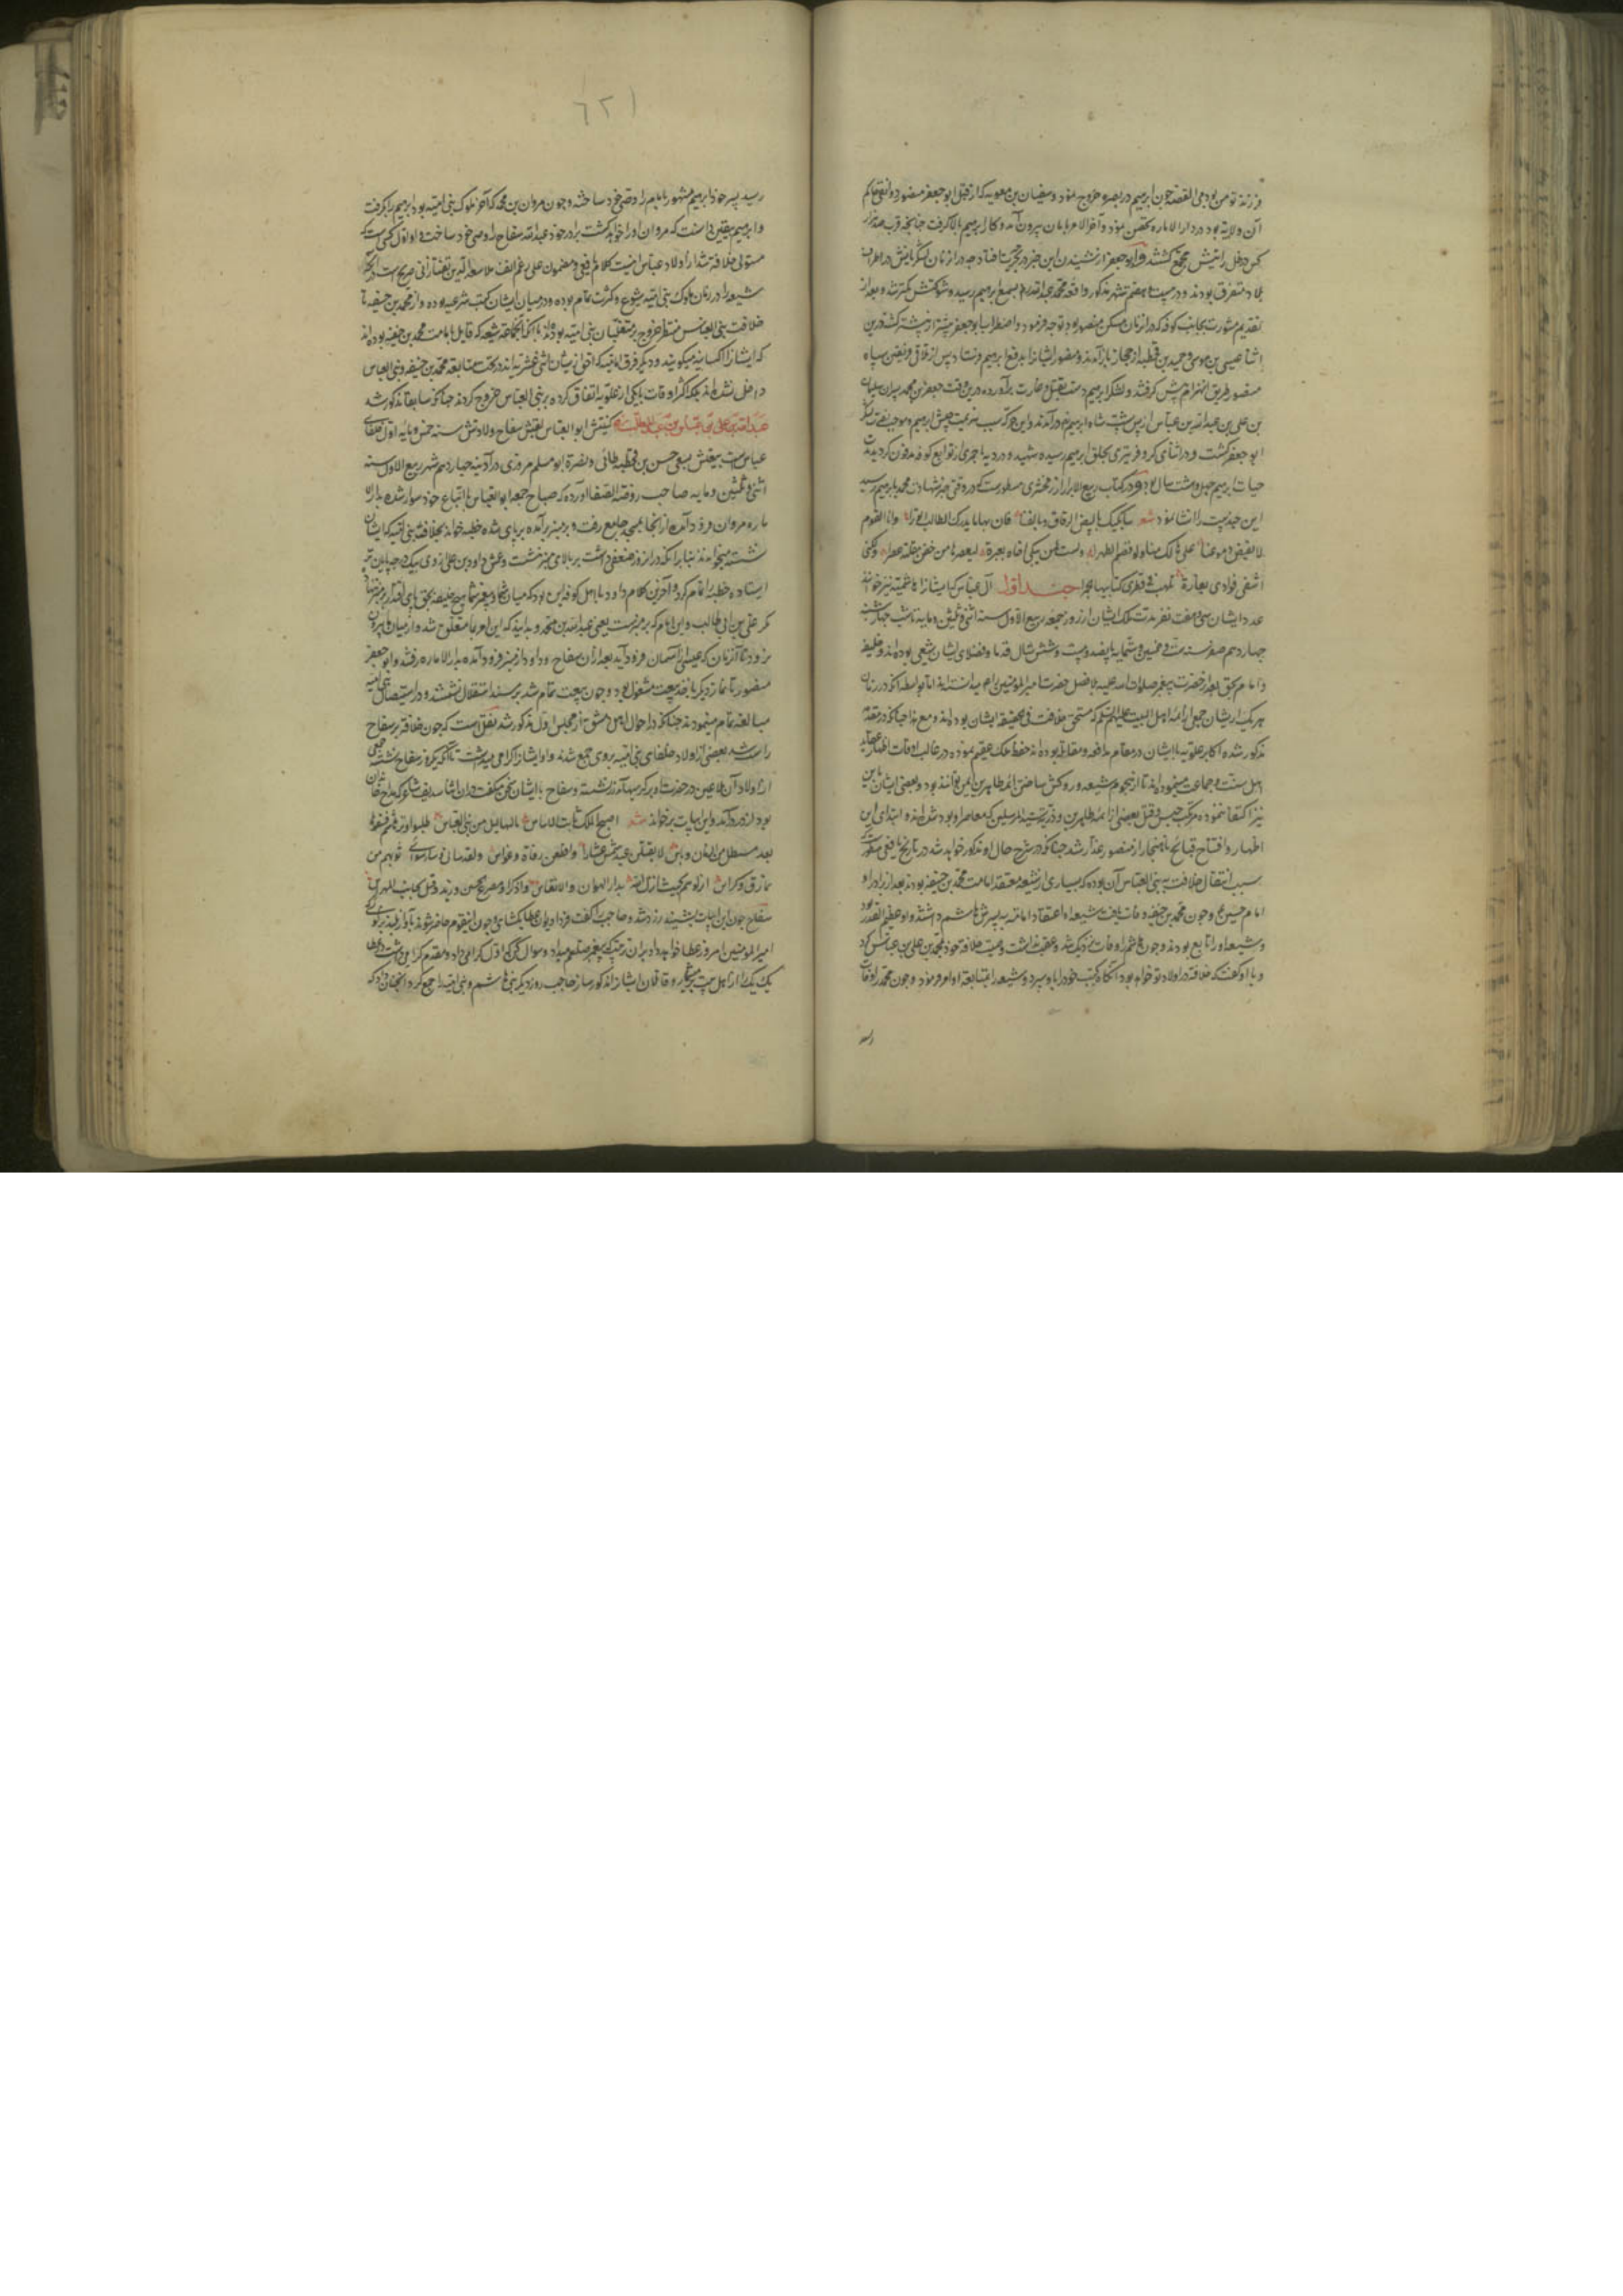 فرزند تو من بودمی القصه چون ابرهیم در بصره خروج نمود و سفیان بن معویه که از قبل ابو جعفر منصور دوانقی حاکم
آن ولایة بود در دار الاماره متحصن شود و آخر الامر بامان بیرون آمد و کار ابرهیم بالا گرفت چنانچه قرب صد هزار
کس در ظل رایتش مجتمع کشتند و ابو جعفر از شنیدن این خبر در حیرت افتاد چه در ان زمان لشکریانش در اطراف
بلاد متفرق بودند و در بیست هفتم شهر مذکور واقعه محمد عبد الله بسمع ابرهیم رسیده شوکتش کمتر شد و بعد از
تقدیم مشورت بجانب کوفه که در ان زمان مسکن منصور بود توجه فرمود و اضطراب ابو جعفر بیشتر از پیشتر کشت درین
اثنا عیسی بن موسی و حمید بن قحطبه از حجاز باز آمدند و منصور ایشانرا بدفع ابرهیم فرستاد پس از تلاقی فریقین سپاه
منصور طریق انهزام پیش کرفتند و لشکر ابرهیم دست بقتل و غارت برآورده درین وقت جعفر و محمد پسران سلیمان
بن علی بن عبد الله بن عباس از پس پشت سپاه ابرهیم در آمدند و این حرکت سبب هزیمت جیش ابرهیم و موجب ظفر لشکر
ابو جعفر کشت و در اثنای کر و فر تیری بحلق ابرهیم رسیده شهید شد و در دیه احمری از توابع کوفه مدفون کردید مدت
حیات ابرهیم چهل و هشت سال بود و در کتاب ربیع الابرار از زمخشری مسطورست که در وقتی خبر شهادت محمد بابرهیم رسید
این چند بیت را انشا نمود شعر سابکیک بالبیض الرقاق و بالقنا فان بها ما یدرک الطالب الوترا وانا لقوم
لا تفیض دموعنا علی هالک منا و لو قصم الظهرا ولست کمن یبکی اخاه بعبرة یعصرها من جفن مقلته عصرا ولکنی
اشفی فوادی بغارة تلهب فی قطری کتائبها جمرا جند اول آل عباس که ایشانرا هاشمیه نیز خوانند
عدد ایشان سی و هفت نفر مدت ملک ایشان از روز جمعه ربیع الاول سنه اثنی و ثلثین و مایه تا شب چهارشنبه
چهاردهم صفر سنه ست و خمسین و ستمایه پانصد و بیست و شش سال قدما و فضلای ایشان شیعی بوده اند و خلیفه
و امام بحق بعد از حضرت پیغمبر صلوات الله علیه بلا فصل حضرت امیر المومنین را میدانسته اند اما بواسطه آنکه در زمان
هر یک از ایشان جمعی از ائمه اهل البیت علیهم السلم که مستحق خلافت فی الحقیقه ایشان بوده اند و مع هذا چنانکه در مقدمه
مذکور شده اکابر علویه با ایشان در مقام مدافعه و مقابله بوده اند حفظ ملک عقیم نموده در غالب اوقات اظهار عقاید
اهل سنت و جماعت مینموده اند تا از هجوم شیعه و رو کش ساختن ائمه طاهرین ایمن توانند بود و بعضی ایشان باین
نیز اکتفا ننموده مرتکب حبس و قتل بعضی از ائمه طاهرین و ذریت سید المرسلین که معاصر او بودند شده اند و ابتدای این
اظهار و افتتاح قبایح ناهنجار از منصور غدار شد چنانکه در شرح حال او مذکور خواهد شد در تاریخ یافعی مسطورست که
سبب انتقال خلافت به بنی العباس آن بوده که بسیاری از شیعه معتقد امامت محمد بن حنفیه بودند بعد از برادر او
امام حسین ع و چون محمد بن حنفیه وفات یافت شیعه او اعتقاد امامة به پسرش هاشم داشتند و او عظیم القدر بود
و شیعه او را تابع بودند و چون هاشم را وفات نزدیک شد و عقب نداشت وصیت خلافة خود بمحمد بن علی بن عباس کرد
و با او گفت که خلافة در اولاد تو خواهد بود آنکاه کتب خود را باو سپرد و شیعه را بمتابعة او امر فرمود و چون محمد را وفات
رسید
۶۲۱
رسید پسر خود ابرهیم مشهور بامام را وصی خود ساخت و چون مروان بن محمد که آخر ملوک بنی امیه بود ابرهیم را بکرفت
و ابرهیم یقین دانست که مروان او را خواهد کشت برادر خود عبد الله سفاح را وصی خود ساخت و او اول کسی است که
متولی خلافة شد از اولاد عباس اینست کلام یافعی و مضمون علی رغم الف ملا سعد الدین تفتازانی صریح است در آنکه
شیعه را در زمان ملوک بنی امیه شیوع و کثرت تمام بوده و در میان ایشان کتب شرعیه بوده و از محمد بن حنفیه تا
خلافت بنی العباس منتظر خروج بر متغلبان بنی امیه بوده اند با آنکه آنجماعة شیعه که قایل بامامت محمد بن حنفیه بوده اند
که ایشانرا کیسانیه میکویند و دیکر فرق امامیه که اقوای ایشان اثنی عشریه اند در تحت متابعة محمد بن حنفیه و بنی العباس
داخل نشده اند بلکه اکثر اوقات با یکی از علویه اتفاق کرده بر بنی العباس خروج کردند چنانکه سابقا مذکور شد
عبد الله بن محمد بن علی بن عباس بن عبد المطلب کنیتش ابو العباس لقبش سفاح ولادتش سنه خمس و مایه اول خلفای
عباس است بیعتش بسعی حسن بن قحطبه طائی و نصرة ابو مسلم مروزی در آدینه چهاردهم شهر ربیع الاول سنه
اثنی و ثلثین و مایه صاحب روضة الصفا آورده که صباح جمعه ابو العباس با اتباع خود سوار شده بدار الا
ماره مروان فرود آمد و از آنجا بمسجد جامع رفت و بر منبر برآمده بر پای شده خطبه خواند بخلاف بنی امیه که ایشان
نشسته میخواندند بنابر آنکه در ان روز ضعفی داشت بر بالای منبر نشست و عمش داود بن علی از وی یک درجه پایین تر
ایستاده خطبه را تمام کرد و آخرین کلام داود با اهل کوفه این بود که میان شما و پیغمبر شما هیچ خلیفه بحق پای اقتدار بر منبر ننهاد
مکر علی بن ابی طالب و این امام که بر منبرست یعنی عبد الله بن محمد و بدانید که این امر بما متعلق شد و از میان ما بیرون
نرود تا آن زمان که عیسی از آسمان فرود آید بعد از ان سفاح و داود از منبر فرود آمده بدار الاماره رفتند و ابو جعفر
منصور تا نماز دیکر باخذ بیعت مشغول بود و چون بیعت تمام شد بر مسند استقلال نشستند و در استیصال بنی امیه
مبالغه تمام مینمودند چنانکه در احوال اهل دمشق از مجلس اول مذکور شد نقل است که چون خلافة بر سفاح
راست شد بعضی از اولاد خلفای بنی امیه بر وی جمع شدند و او ایشانرا کرامی میداشت تا آنکه یکروز سفاح نشسته جمعی
از اولاد آن ملاعین در حضرت او بر کرسیهاء زر نشسته و سفاح با ایشان سخن میکفت در ان اثنا سدیف شاعر که مداح خاندان
بود از در در آمد و این ابیات برخواند شعر اصبح الملک ثابت الاساس بالبهالیل من بنی العباس طلبوا وتر هاشم فشفوها
بعد میل من الزمان و یاس لا تقیلن عبد شمس عثارا واقطعن رقلة وغراس ولقد ساءنی و ساء سوائی قربهم من
نمارق وکراسی انزلوها بحیث انزلها الله بدار الهوان والاتعاس واذکروا مصرع الحسین وزید وقتیل بجانب المهراس
سفاح چون این ابیات بشنید زرد شد و حاجب را کفت فردا دیوان عطا بکشای و چون این قوم حاضر شوند بآواز بلند بر کوی
امیر المومنین امروز عطا خواهد داد بدان ترتیب که پیغمبر صلعم میداد و سوال کن که اول کرا می داد و مقدم کرا میداشت و نام
یک یک را از اهل بیت میشمار و قاتلان ایشانرا مذکور ساز حاجب روز دیکر بنی هاشم و بنی امیه را جمع کرد و آنچنان کرد که